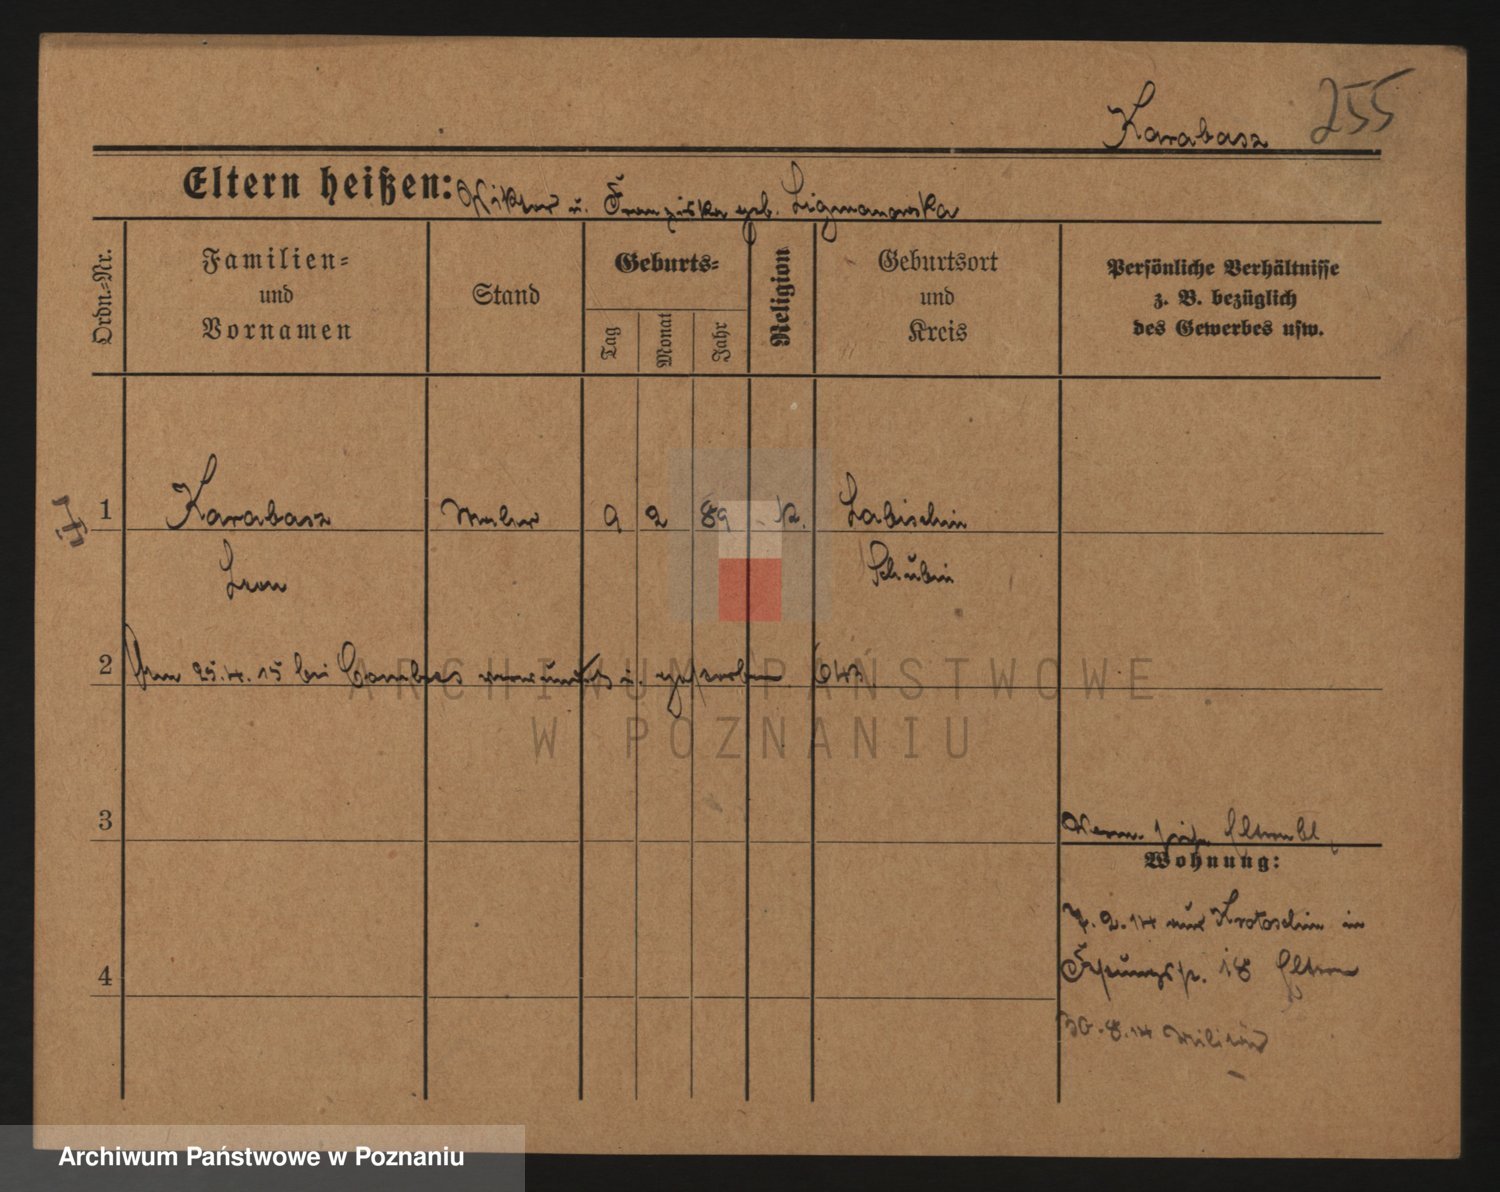 Karabasz 255
Eltern heißen: Viktor u. Franziska geb. Ligmanowska
Ordn.-Nr.
Familien-
und
Vornamen
Stand
Geburts-
Tag
Monat
Jahr
Religion
Geburtsort
und
Kreis
Persönliche Verhältnisse
z. B. bezüglich
des Gewerbes usw.
1 Karabasz Maler 9 2 89 k. Labischin
Leon Schubin
2 Am 25.4.15 bei verwundet u. gestorben
ARCHIWUM PAŃSTWOWE
W POZNANIU
3
Wohnung:
7.2.14 aus Krotoschin in
4 18 Eltern
30.8.14 Militär
Archiwum Państwowe w Poznaniu